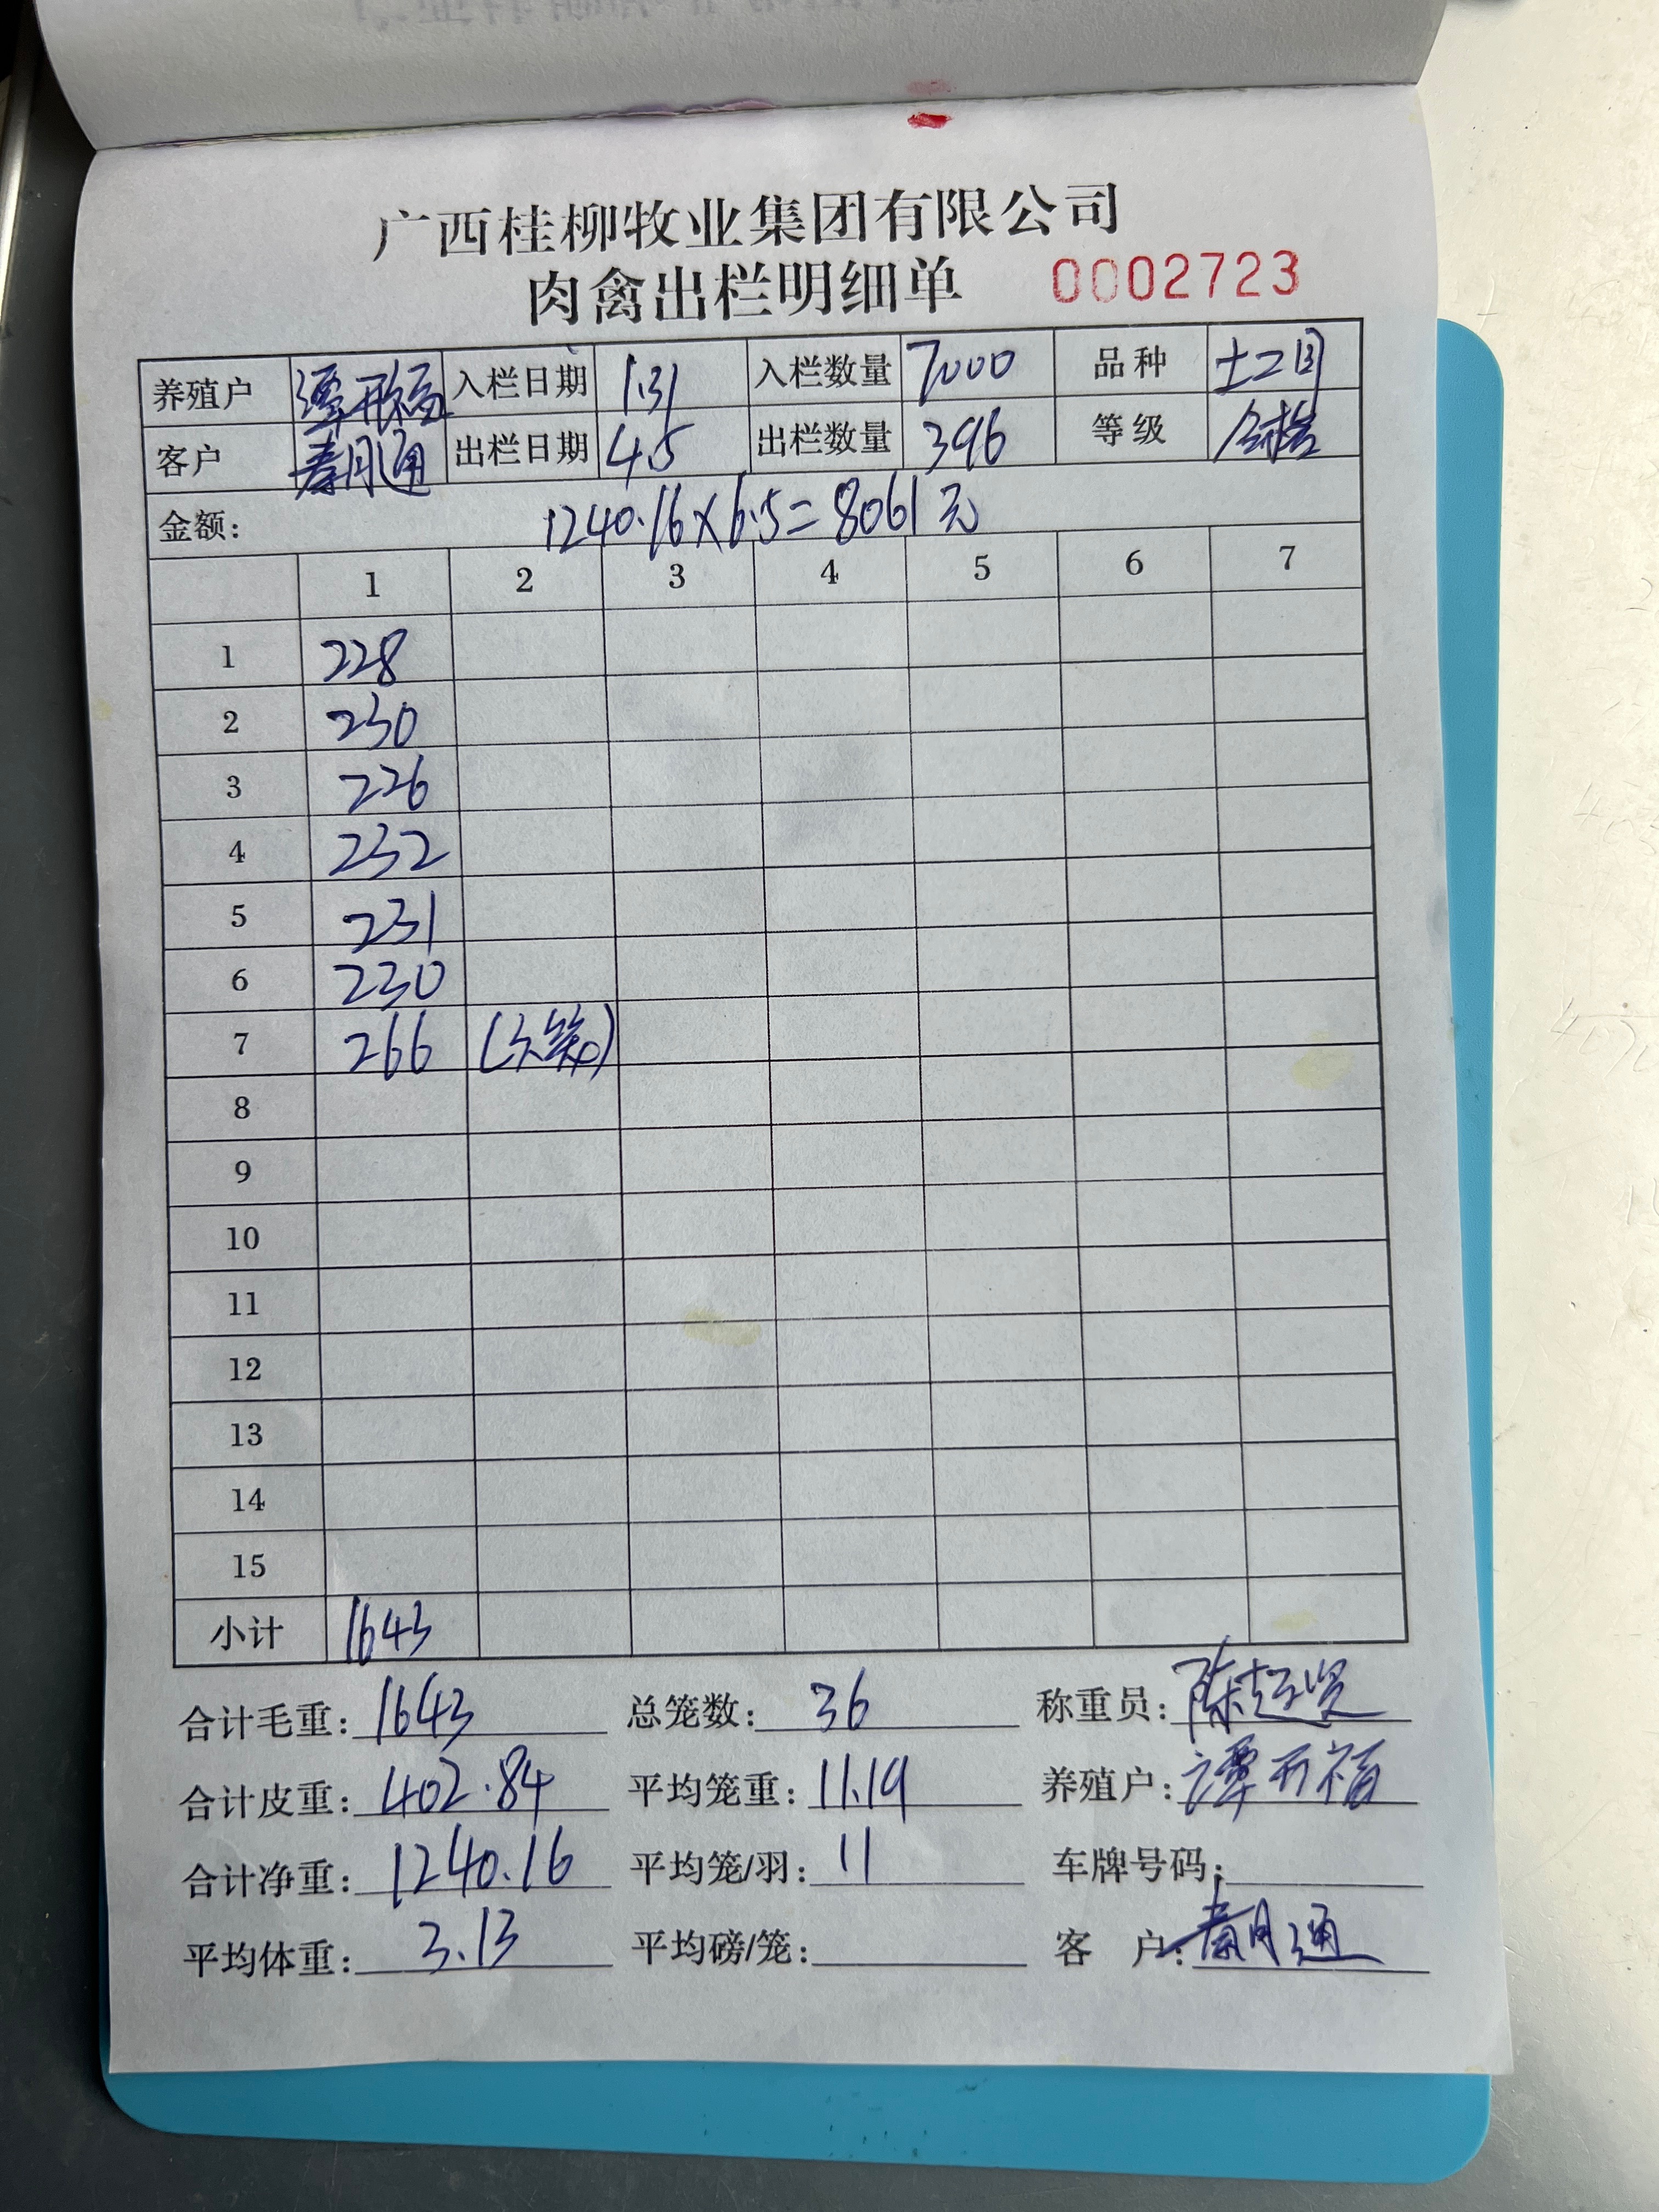 广西桂柳牧业集团有限公司
肉禽出栏明细单 0002723
养殖户 谭开福 入栏日期 1.31 入栏数量 7000 品种 土二
客户 秦月通 出栏日期 4.5 出栏数量 396 等级
金额: 1240.16×6.5=8061元
1 2 3 4 5 6 7
1 228
2 230
3 226
4 232
5 231
6 230
7 266
8
9
10
11
12
13
14
15
小计 1643
合计毛重: 1643 总笼数: 36 称重员: 陈超贤
合计皮重: 402.84 平均笼重: 11.19 养殖户: 谭开福
合计净重: 1240.16 平均笼/羽: 11 车牌号码:
平均体重: 3.13 平均磅/笼: 客 户: 秦月通